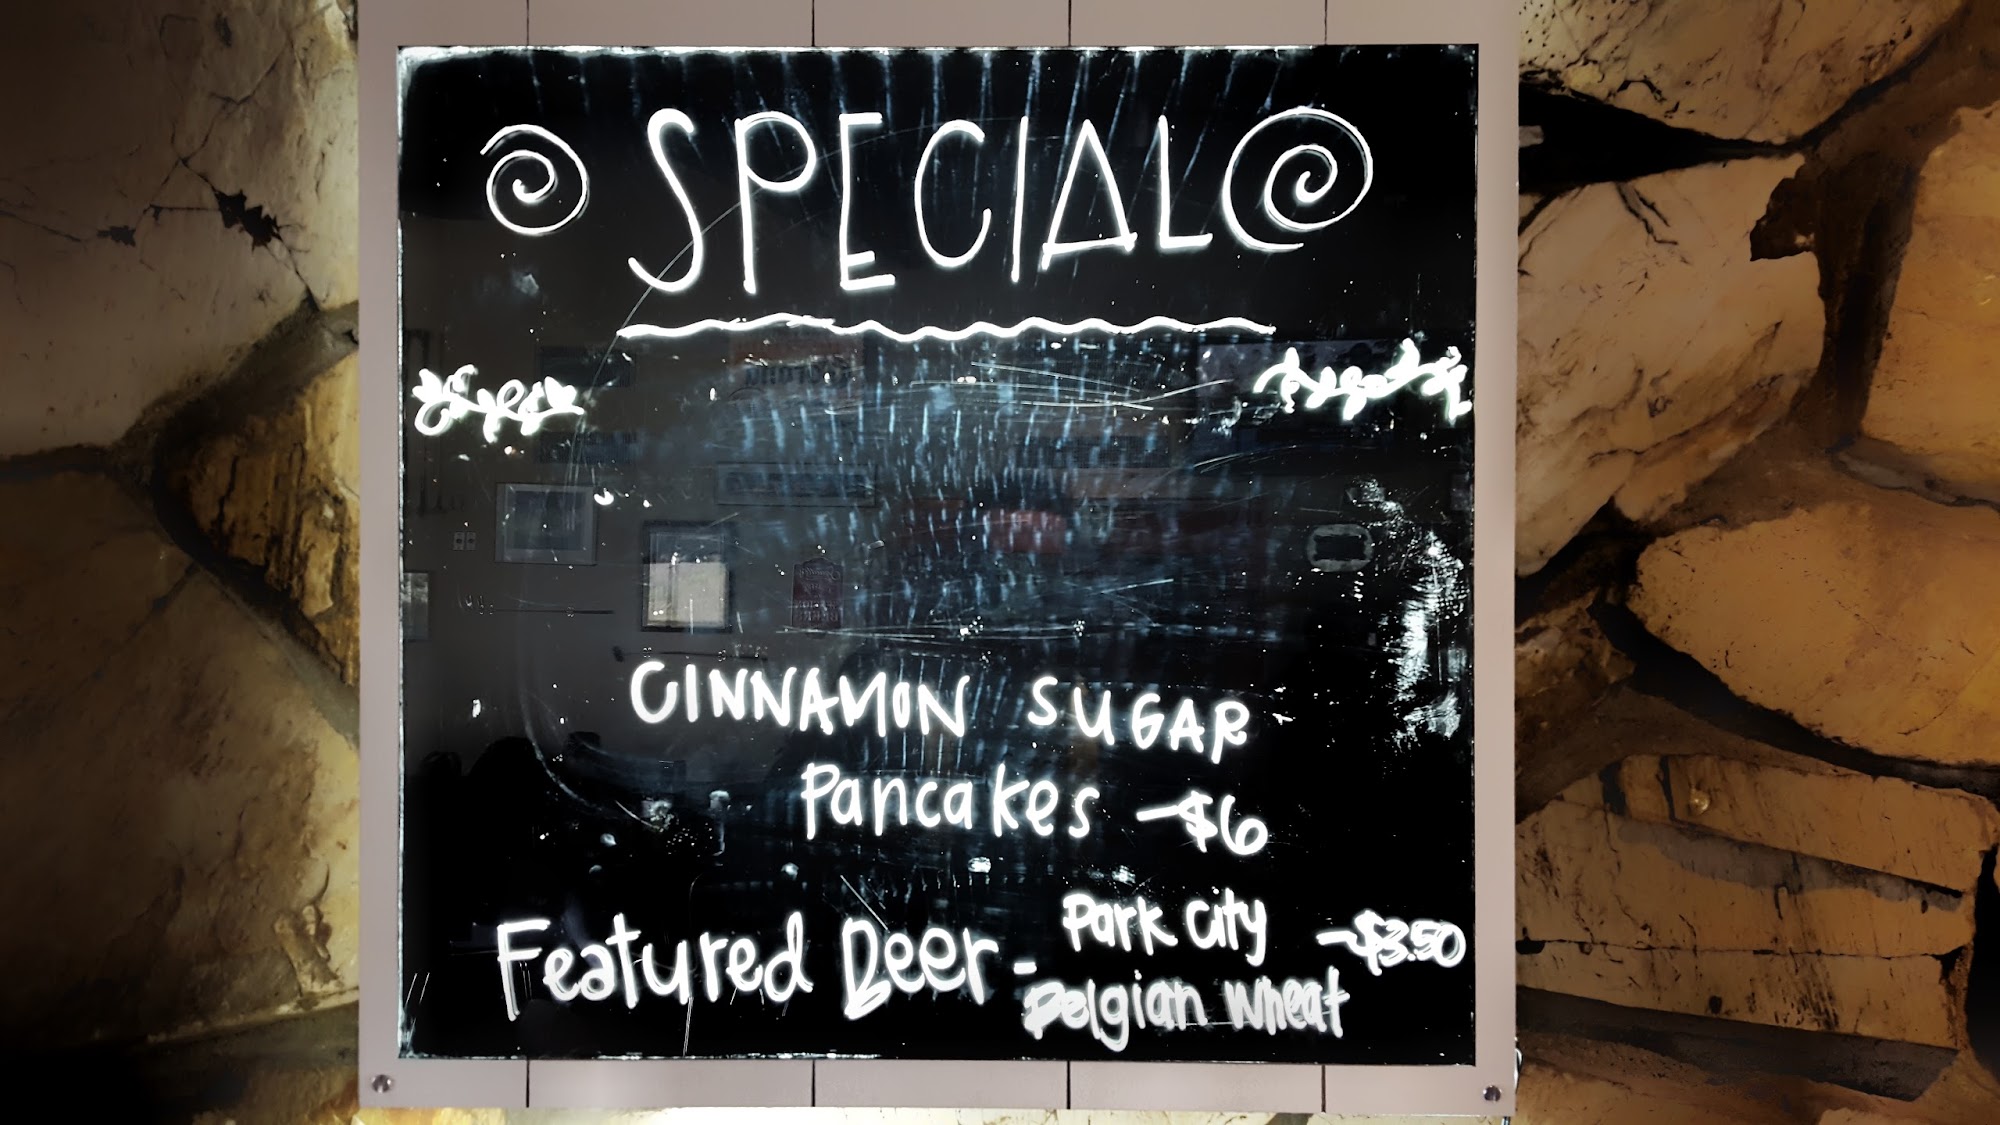 SPECIAL
CINNAMON SUGAR
Pancakes - $6
Featured Beer - Park City - $3.50
Belgian Wheat